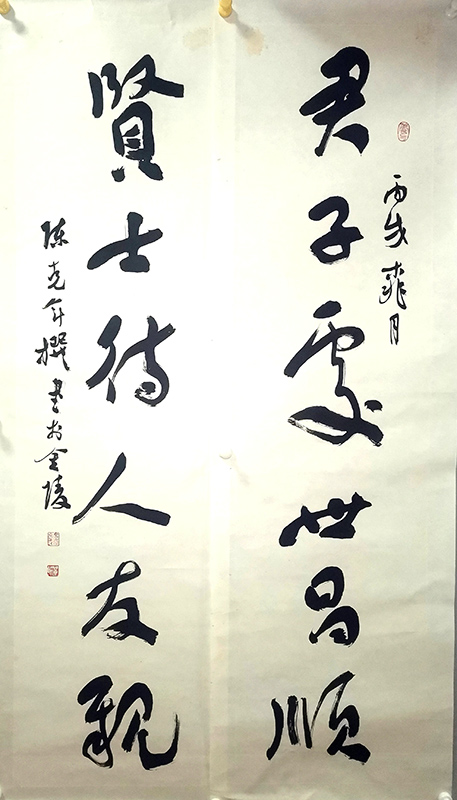 丙戌月
君子處世昌順
賢士待人友親
陳克年撰書於金陵